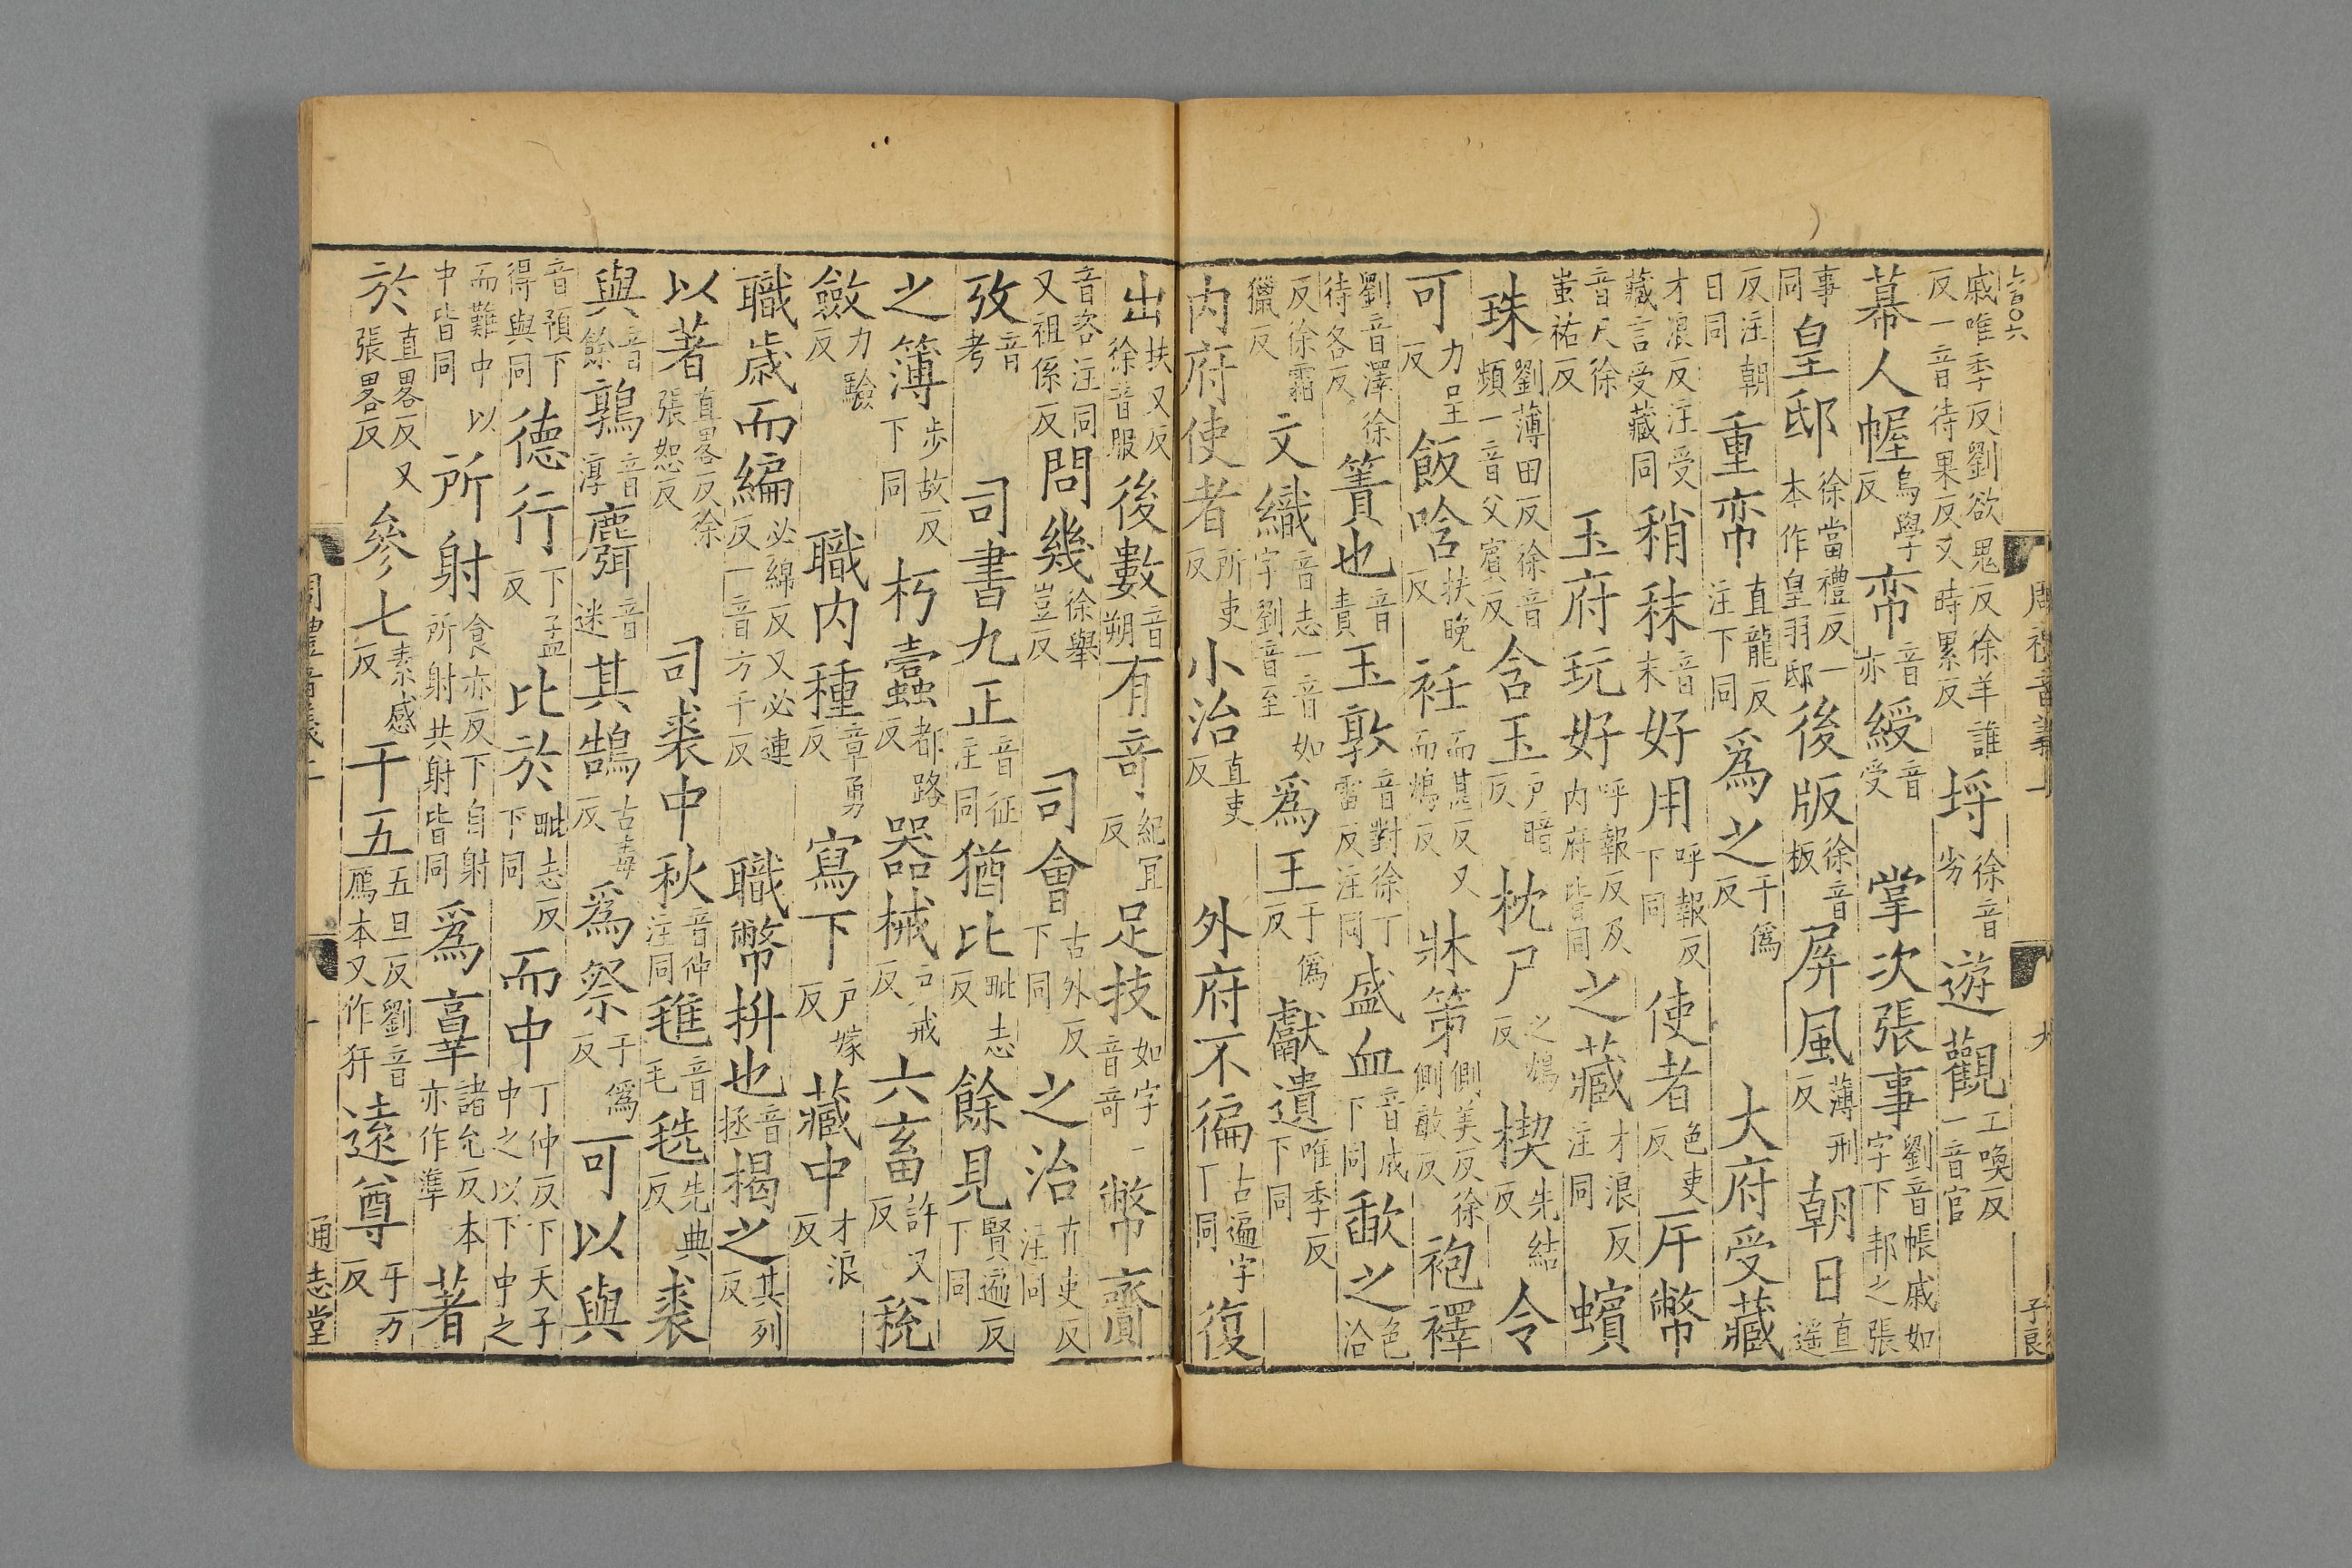 周禮音義上 九 子良
戚唯季反劉欲鬼反徐羊誰反一音待果反又時累反埒徐音劣遊觀工喚反一音官
幕人幄烏學反帟音亦綬音受 掌次張事劉音帳戚如字下邦之張
事同皇邸徐當禮反一本作皇羽邸後版徐音板屏風薄刑反朝日直遥
反注朝日同重帟直龍反注下同爲之于僞反 大府受藏
才浪反注受藏言受藏同稍秣音末好用呼報反下同使者色吏反斥幣
音尺徐蚩祐反 玉府玩好呼報反及内府皆同之藏才浪反注同蠙
珠劉薄田反徐音頻一音父賓反含玉户暗反枕尸之鴆反楔先結反令
可力呈反飯唅扶晚反衽而甚反又而鴆反牀第側美反徐側敢反袍襗
劉音澤徐待各反簀也音責玉敦音對徐丁雷反注同盛血音成下同歃之色洽
反徐霜獵反文織音志一音如字劉音至爲王于僞反獻遺唯季反下同
内府使者所吏反小治直吏反 外府不徧古遍字下同復
出扶又反徐音服後數音朔有竒紀宜反足技如字一音竒幣齎
音咨注同又祖係反問幾徐舉豈反 司會古外反下同之治直吏反注同
攷音考 司書九正音征注同猶比毗志反餘見賢遍反下同
之簿步故反下同朽蠹都路反器械户戒反六畜許又反稅
斂力驗反 職内種章勇反寫下户嫁反藏中才浪反
職歳而編必綿反又必連反一音方千反 職幣拼也音拯揭之其列反
以著直畧反徐張恕反 司裘中秋音仲注同毨音毛毨先典反裘
與音餘鶉音淳麛音迷其鵠古毒反爲祭于僞反可以與
音預下得與同德行下孟反比於毗志反下同而中丁仲反下天子中之以下中之
而難中以中皆同所射食亦反下自射所射共射皆同爲臯諸允反本亦作準著
於直畧反又張畧反參七素感反干五五旦反劉音鴈本又作犴遠尊于万反
周禮音義上 十 通志堂